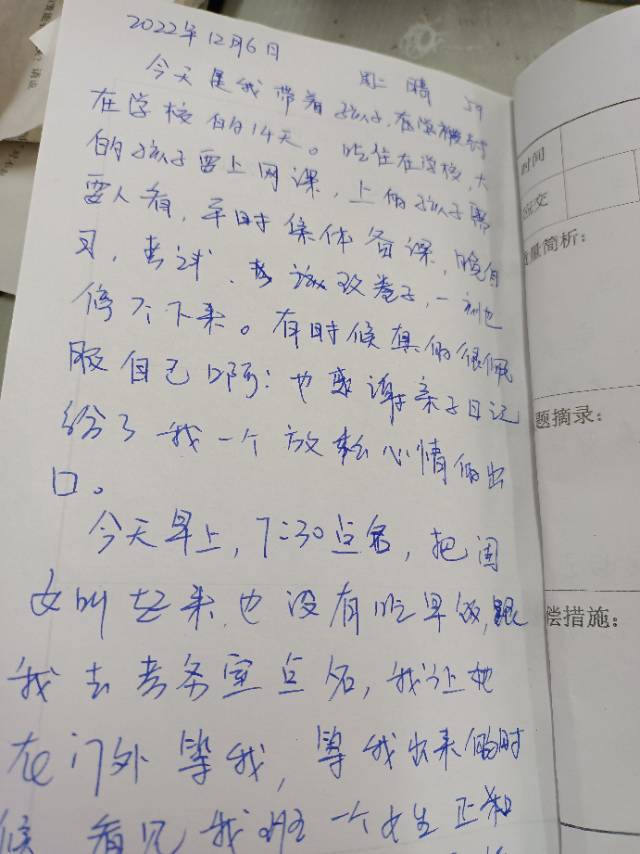 2022年12月6日
周二 晴 59
今天是我带着孩子,在学校
在学校的14天。吃住在学校,大
的孩子要上网课,上的孩子需
要人看,平时集体备课,晚自
习,考试、考该改卷子,一刻也
停不下来。有时候真的很佩
服自己啊:也感谢亲子日记
给了我一个放松心情的出
口。
今天早上,7:30点名,把闺
女叫起来,也没有吃早饭,跟
我去考务室点名,我让她
在门外等我,等我出来的时
候 看见我班一个女生正和
时间
量简析:
题摘录:
偿措施: